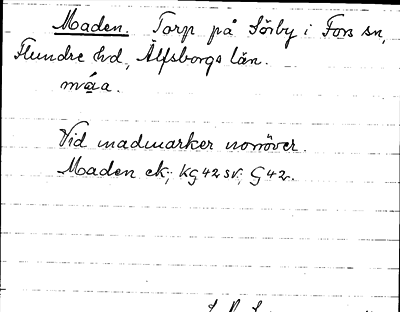 Maden. Torp på Sörby i Fors sn,
Flundre hd, Älfsborgs län.
måa.
Vid madmarker norröver.
Maden ek; KG 42 sv; G 42.